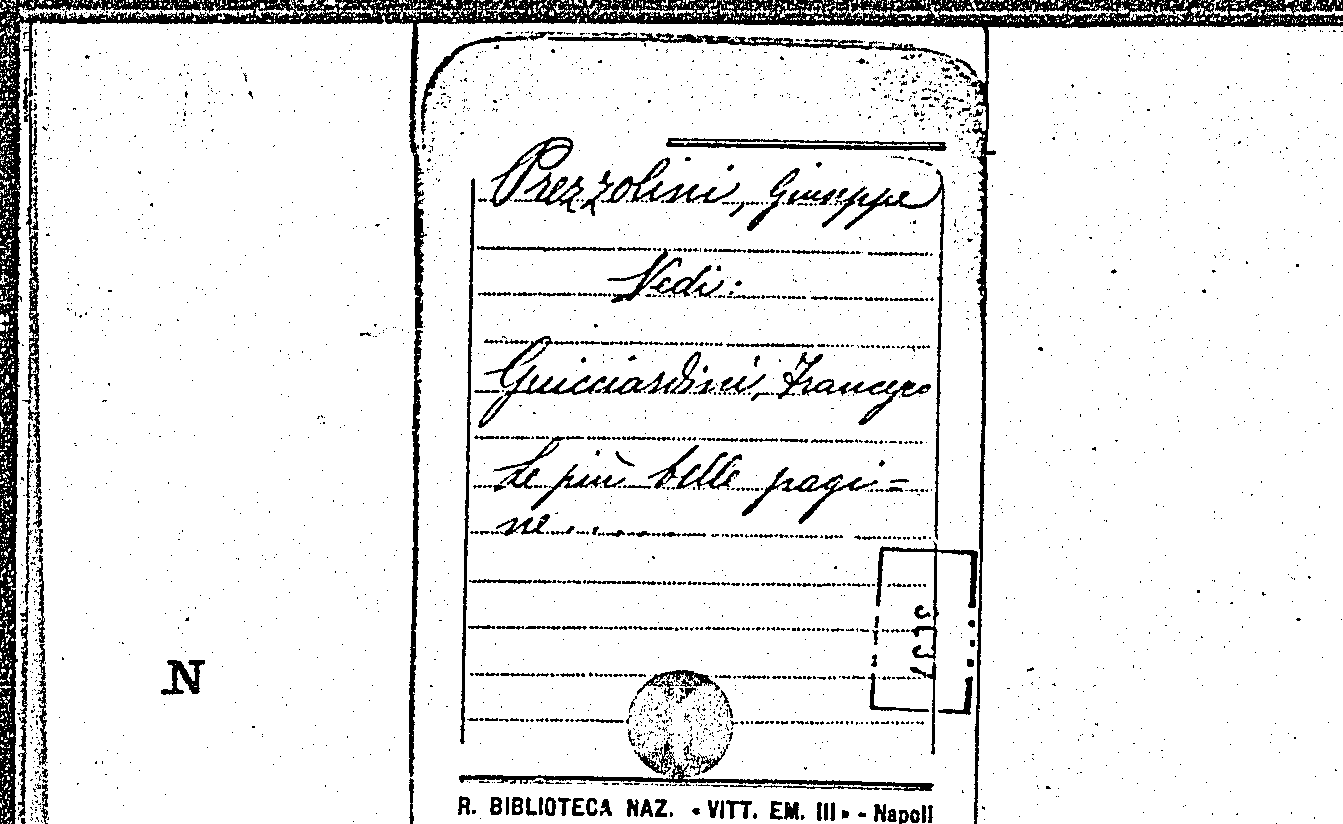 Prezzolini, Giuseppe
Vedi:
Guicciardini, Francesco
Le più belle pagi=
ne.....
N
R. BIBLIOTECA NAZ. « VITT. EM. III » - Napoli